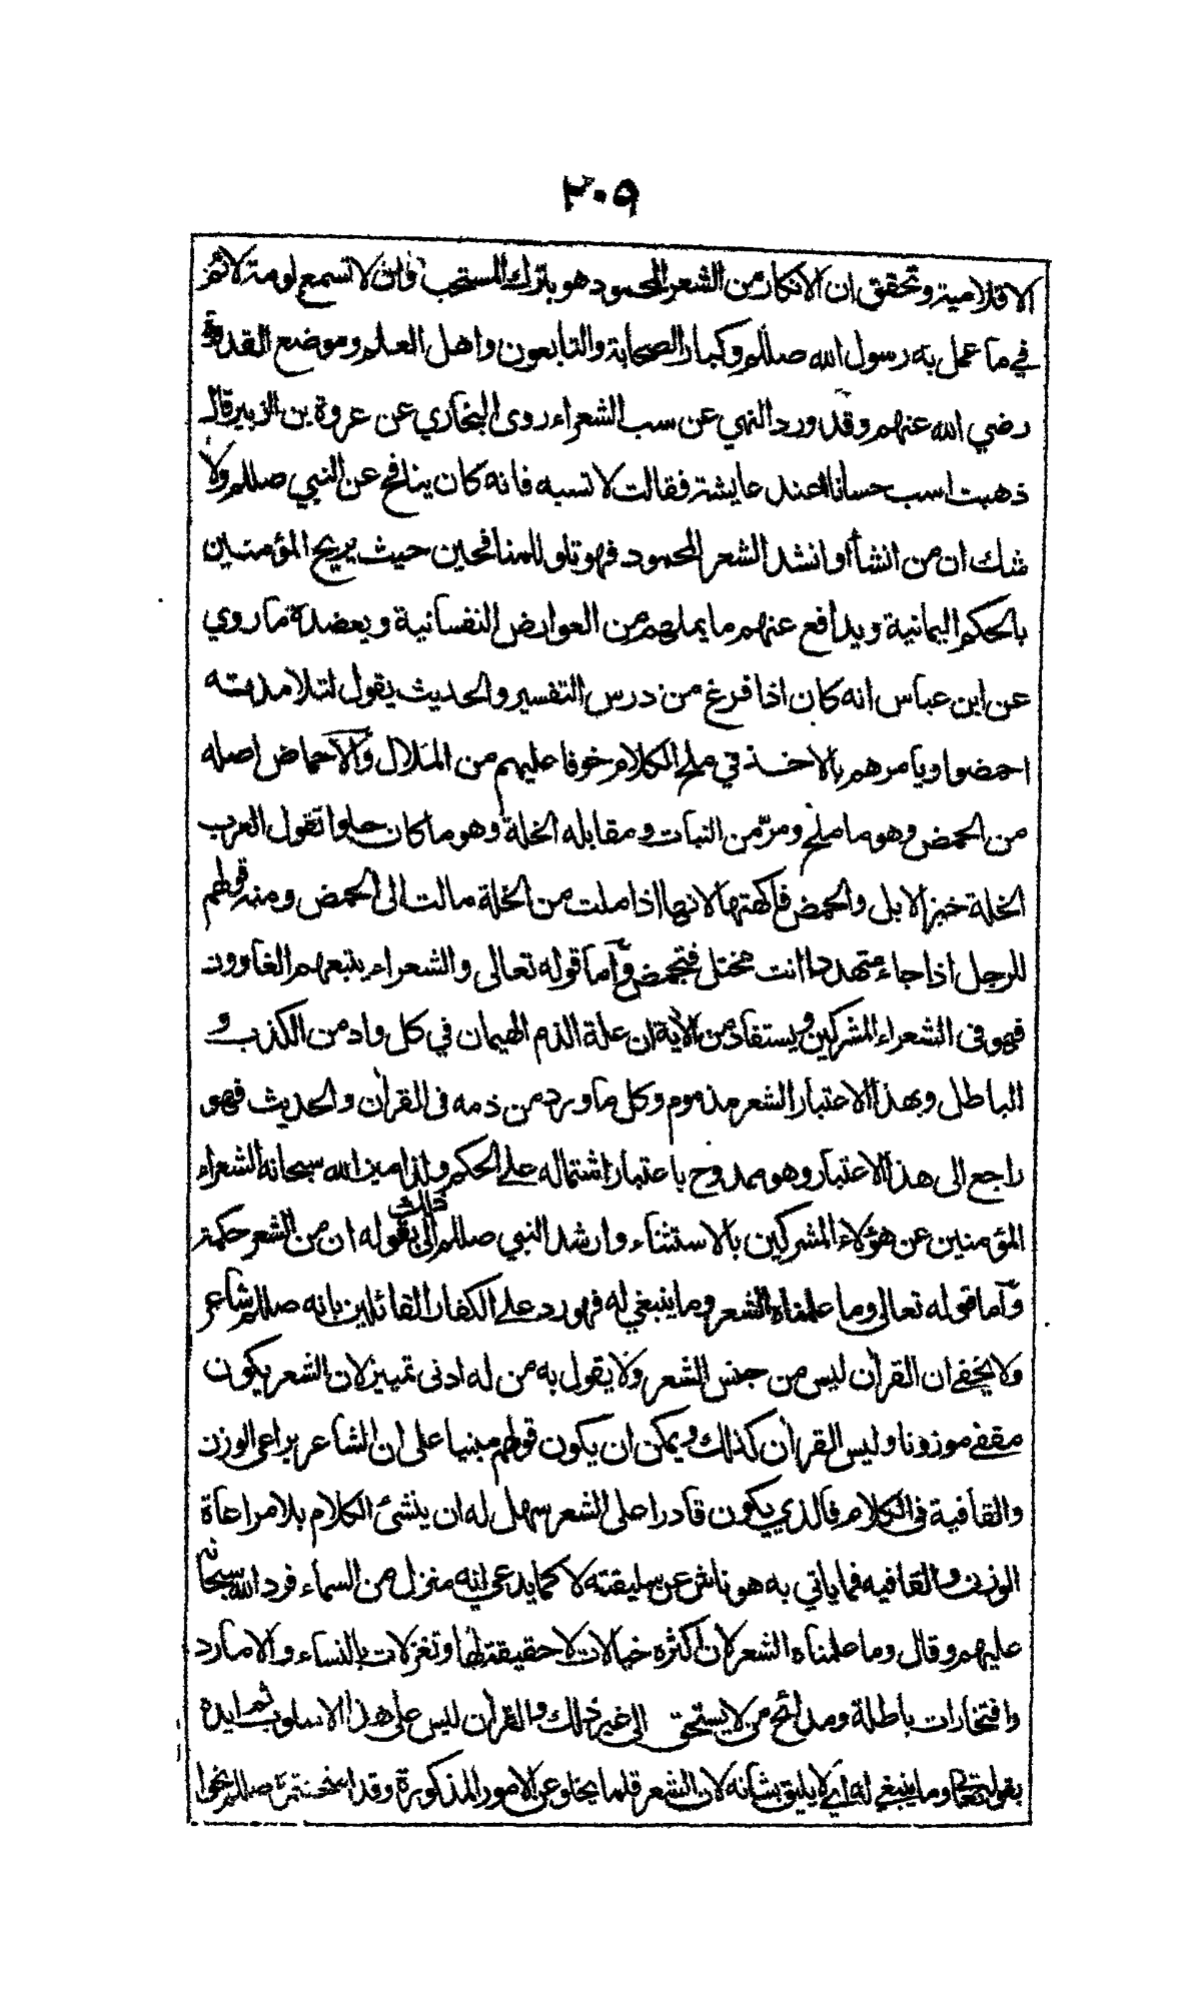 ٢٠٩
الاقلامية وتحقق ان الانكار من الشعر المحمود هو بترك المستحب وان لا تسمع لومة لائم
في ما عمل به رسول الله صللم وكبار الصحابة والتابعون واهل العلم وموضع القدوة
رضي الله عنهم وقد ورد النهي عن سب الشعراء روى البخاري عن عروة بن الزبير قال
ذهبت اسب حسانا عند عايشة فقالت لا تسبه فانه كان ينافح عن النبي صللم ولا
شك ان من انشأ او انشد الشعر المحمود فهو تلو للمنافحين حيث يريح المؤمنين
بالحكم اليمانية ويدافع عنهم ما يملهم من العوارض النفسانية ويعضده ما روي
عن ابن عباس انه كان اذا فرغ من درس التفسير والحديث يقول لتلامذته
احمضوا ويأمرهم بالاخذ في ملح الكلام خوفا عليهم من الملال والاحماض اصله
من الحمض وهو ما ملح ومرّ من النبات ومقابله الخلة وهو ما كان حلوا تقول العرب
الخلة خبز الابل والحمض فاكهتها لانها اذا ملت من الخلة مالت الى الحمض ومنه قولهم
للرجل اذا جاء متهددا انت مختل فتحمض وأما قوله تعالى والشعراء يتبعهم الغاوون
فهو فى الشعراء المشركين ويستفاد من الآية ان علة الذم الهيمان في كل واد من الكذب و
الباطل وبهذا الاعتبار الشعر مذموم وكل ما ورد من ذمه فى القرآن والحديث فهو
راجع الى هذا الاعتبار وهو ممدوح باعتبار اشتماله على الحكم ولذا ميز الله سبحانه الشعراء
المؤمنين عن هؤلاء المشركين بالاستثناء وارشد النبي صللم الى ذلك بقوله ان من الشعر حكمة
وأما قوله تعالى وما علمناه الشعر وما ينبغي له فهو رد على الكفار القائلين بانه صللم شاعر
ولا يخفى ان القرآن ليس من جنس الشعر ولا يقول به من له ادنى تمييز لان الشعر يكون
مقفى موزونا وليس القرآن كذلك ويمكن ان يكون قولهم مبنيا على ان الشاعر يراعى الوزن
والقافية فى الكلام فالذي يكون قادرا على الشعر سهل له ان ينشئ الكلام بلا مراعاة
الوزن والقافيه فما ياتي به هو ناش عن سليقته لا كما يدعي انه منزل من السماء فرد الله سبحانه
عليهم وقال وما علمناه الشعر لان اكثره خيالات لا حقيقة لها وتغزلات بالنساء والامارد
وافتخارات باطلة ومدائح من لا يستحق الى غير ذلك والقرآن ليس على هذا الاسلوب ثم ايده
بقوله تعالى وما ينبغي له اي لا يليق بشانه لان الشعر قلما يخلو عن الامور المذكورة وقد صللم نحوا